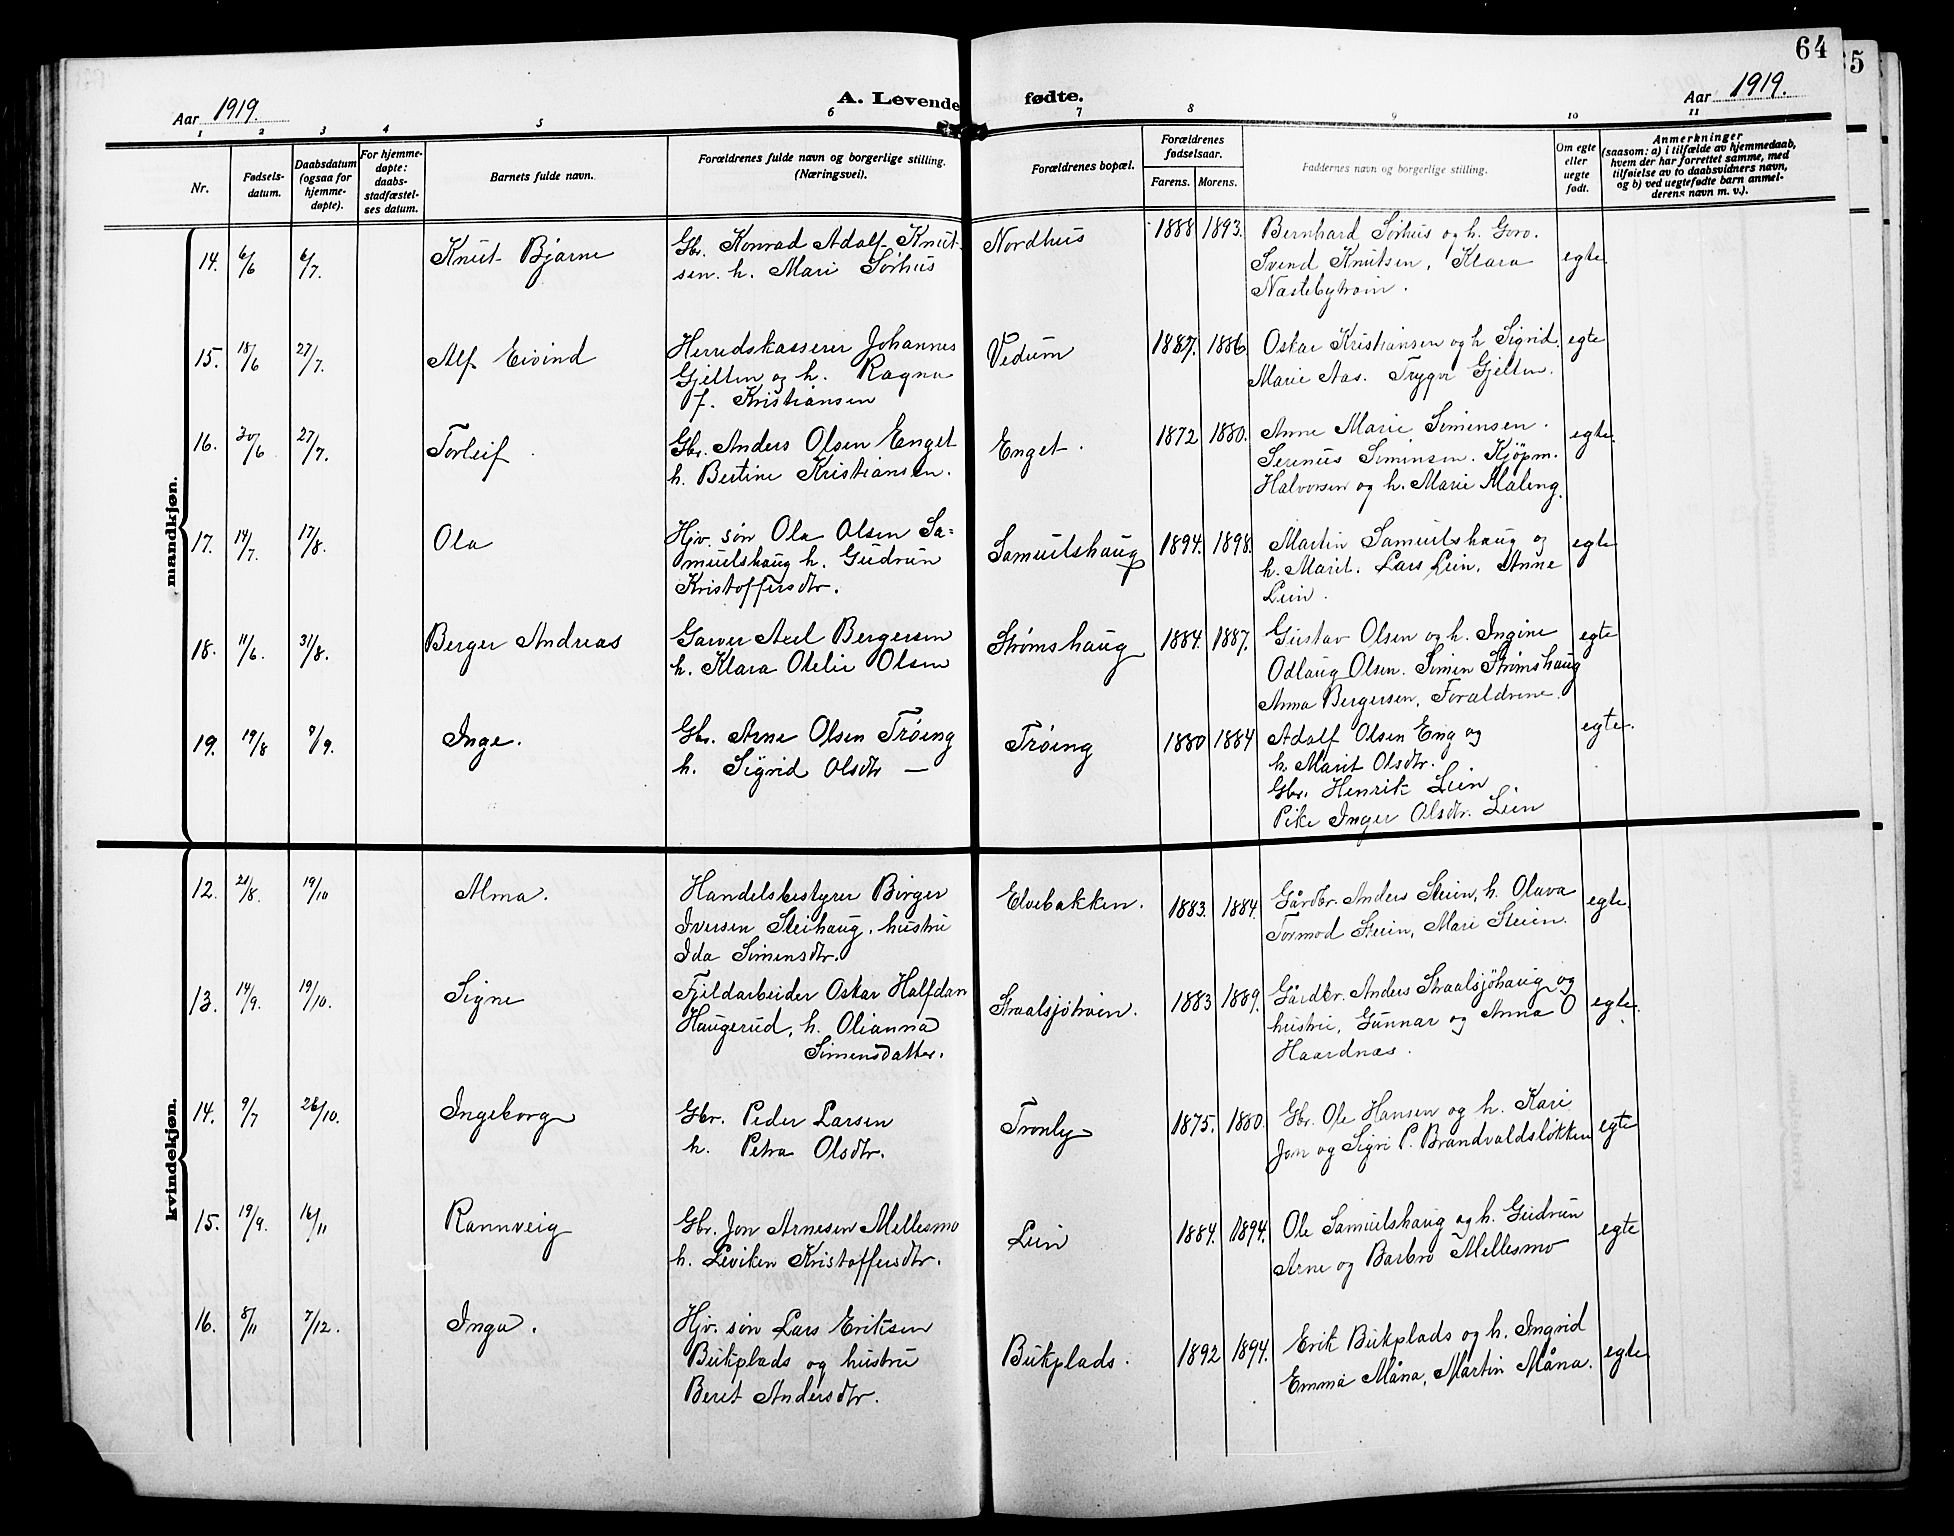 64
5
Aar 1919.
A. Levende fødte.
Aar 1919.
1 2 3 4 5 6 7 8 9 10 11
Nr.
Fødsels-
datum.
Daabsdatum
(ogsaa for
hjemme-
døpte).
For hjemme-
døpte:
daabs-
stadfæstel-
ses datum.
Barnets fulde navn.
Forældrenes fulde navn og borgerlige stilling.
(Næringsvei).
Forældrenes bopæl.
Forældrenes
fødselsaar.
Farens. Morens.
Faddernes navn og borgerlige stilling.
Om egte
eller
uegte
født.
Anmerkninger
(saasom: a) i tilfælde av hjemmedaab,
hvem der har forrettet samme, med
tilføielse av to daabsvidners navn,
og b) ved uegtefødte barn anmel-
derens navn m. v.).
mandkjøn.
14. 6/6 6/7. Knut Bjarne
Gbr. Konrad Adolf Knut-
sen. h. Mari Sørhus
Nordhus 1888 1893.
Bernhard Sørhus og h. Goro.
Svend Knutsen, Klara
Næstebytrøin.
egte.
15. 18/6 27/7. Alf Eivind
Herredskasserer Johannes
Gjelten og h. Ragna
f. Kristiansen
Vedum 1887. 1886
Oskar Kristiansen og h Sigrid.
Marie Aas. Trygve Gjelten.
egte
16. 30/6 27/7. Torleif
Gbr. Anders Olsen Enget
h. Bertine Kristiansen.
Enget. 1872 1880.
Anne Marie Simensen.
Serenus Simensen. Kjøpm.
Halvorsen og h. Marie Maleng.
egte.
17. 14/7. 17/8. Ola
Hjv. søn Ola Olsen Sa=
muelshaug h. Gudrun
Kristoffersdtr.
Samuelshaug 1894. 1898.
Martin Samuelshaug og
h. Marit. Lars Lien, Anne
Lien.
egte
18. 11/6. 31/8. Berger Andreas
Garver Axel Bergersen
h. Klara Otelie Olsen
Strømshaug 1884. 1887.
Gustav Olsen og h. Ingine
Odlaug Olsen. Simen Strømshaug
Anna Bergersen, Forældrene.
egte
19. 19/8 7/9. Inge.
Gbr. Arne Olsen Trøeng
h. Sigrid Olsdtr —
Trøeng 1880 1884
Adolf Olsen Eng og
h. Marit Olsdtr.
Gbr. Henrik Lien
Pike Inger Olsdtr. Lien
egte.
kvindekjøn.
12. 21/8. 19/10 Alma.
Handelsbestyrer Birger
Iversen Steihaug, hustru
Ida Simensdtr.
Elvebakken. 1883. 1884.
Gårdbr. Anders Steien, h. Olava
Tormod Steien, Mari Steien.
egte.
13. 14/9. 19/10. Signe
Fjeldarbeider Oskar Halfdan
Haugerud, h. Olianna
Simensdatter.
Straalsjøtrøen. 1883 1889.
Gårdbr. Anders Straalsjøhaug og
hustru, Gunnar og Anna O
Haardnæs.
egte.
14. 9/7 26/10. Ingeborg
Gbr. Peder Larsen
h. Petra Olsdtr.
Tronly 1875. 1880.
Gbr. Ole Hansen og h. Kari
Jon og Sigri P. Brandvoldsløkken
egte
15. 19/9. 16/11 Rannveig
Gbr. Jon Arnesen Mellesmo
h. Leviken Kristoffersdtr.
Lien 1884. 1894.
Ole Samuelshaug og h. Gudrun
Arne og Barbro Mellesmo
egte
16. 8/11 7/12. Inga.
Hjv. søn Lars Eriksen
Bukplads og hustru
Beret Andersdtr.
Bukplads. 1892 1894.
Erik Bukplads og h. Ingrid
Emma Måna, Martin Måna.
egte